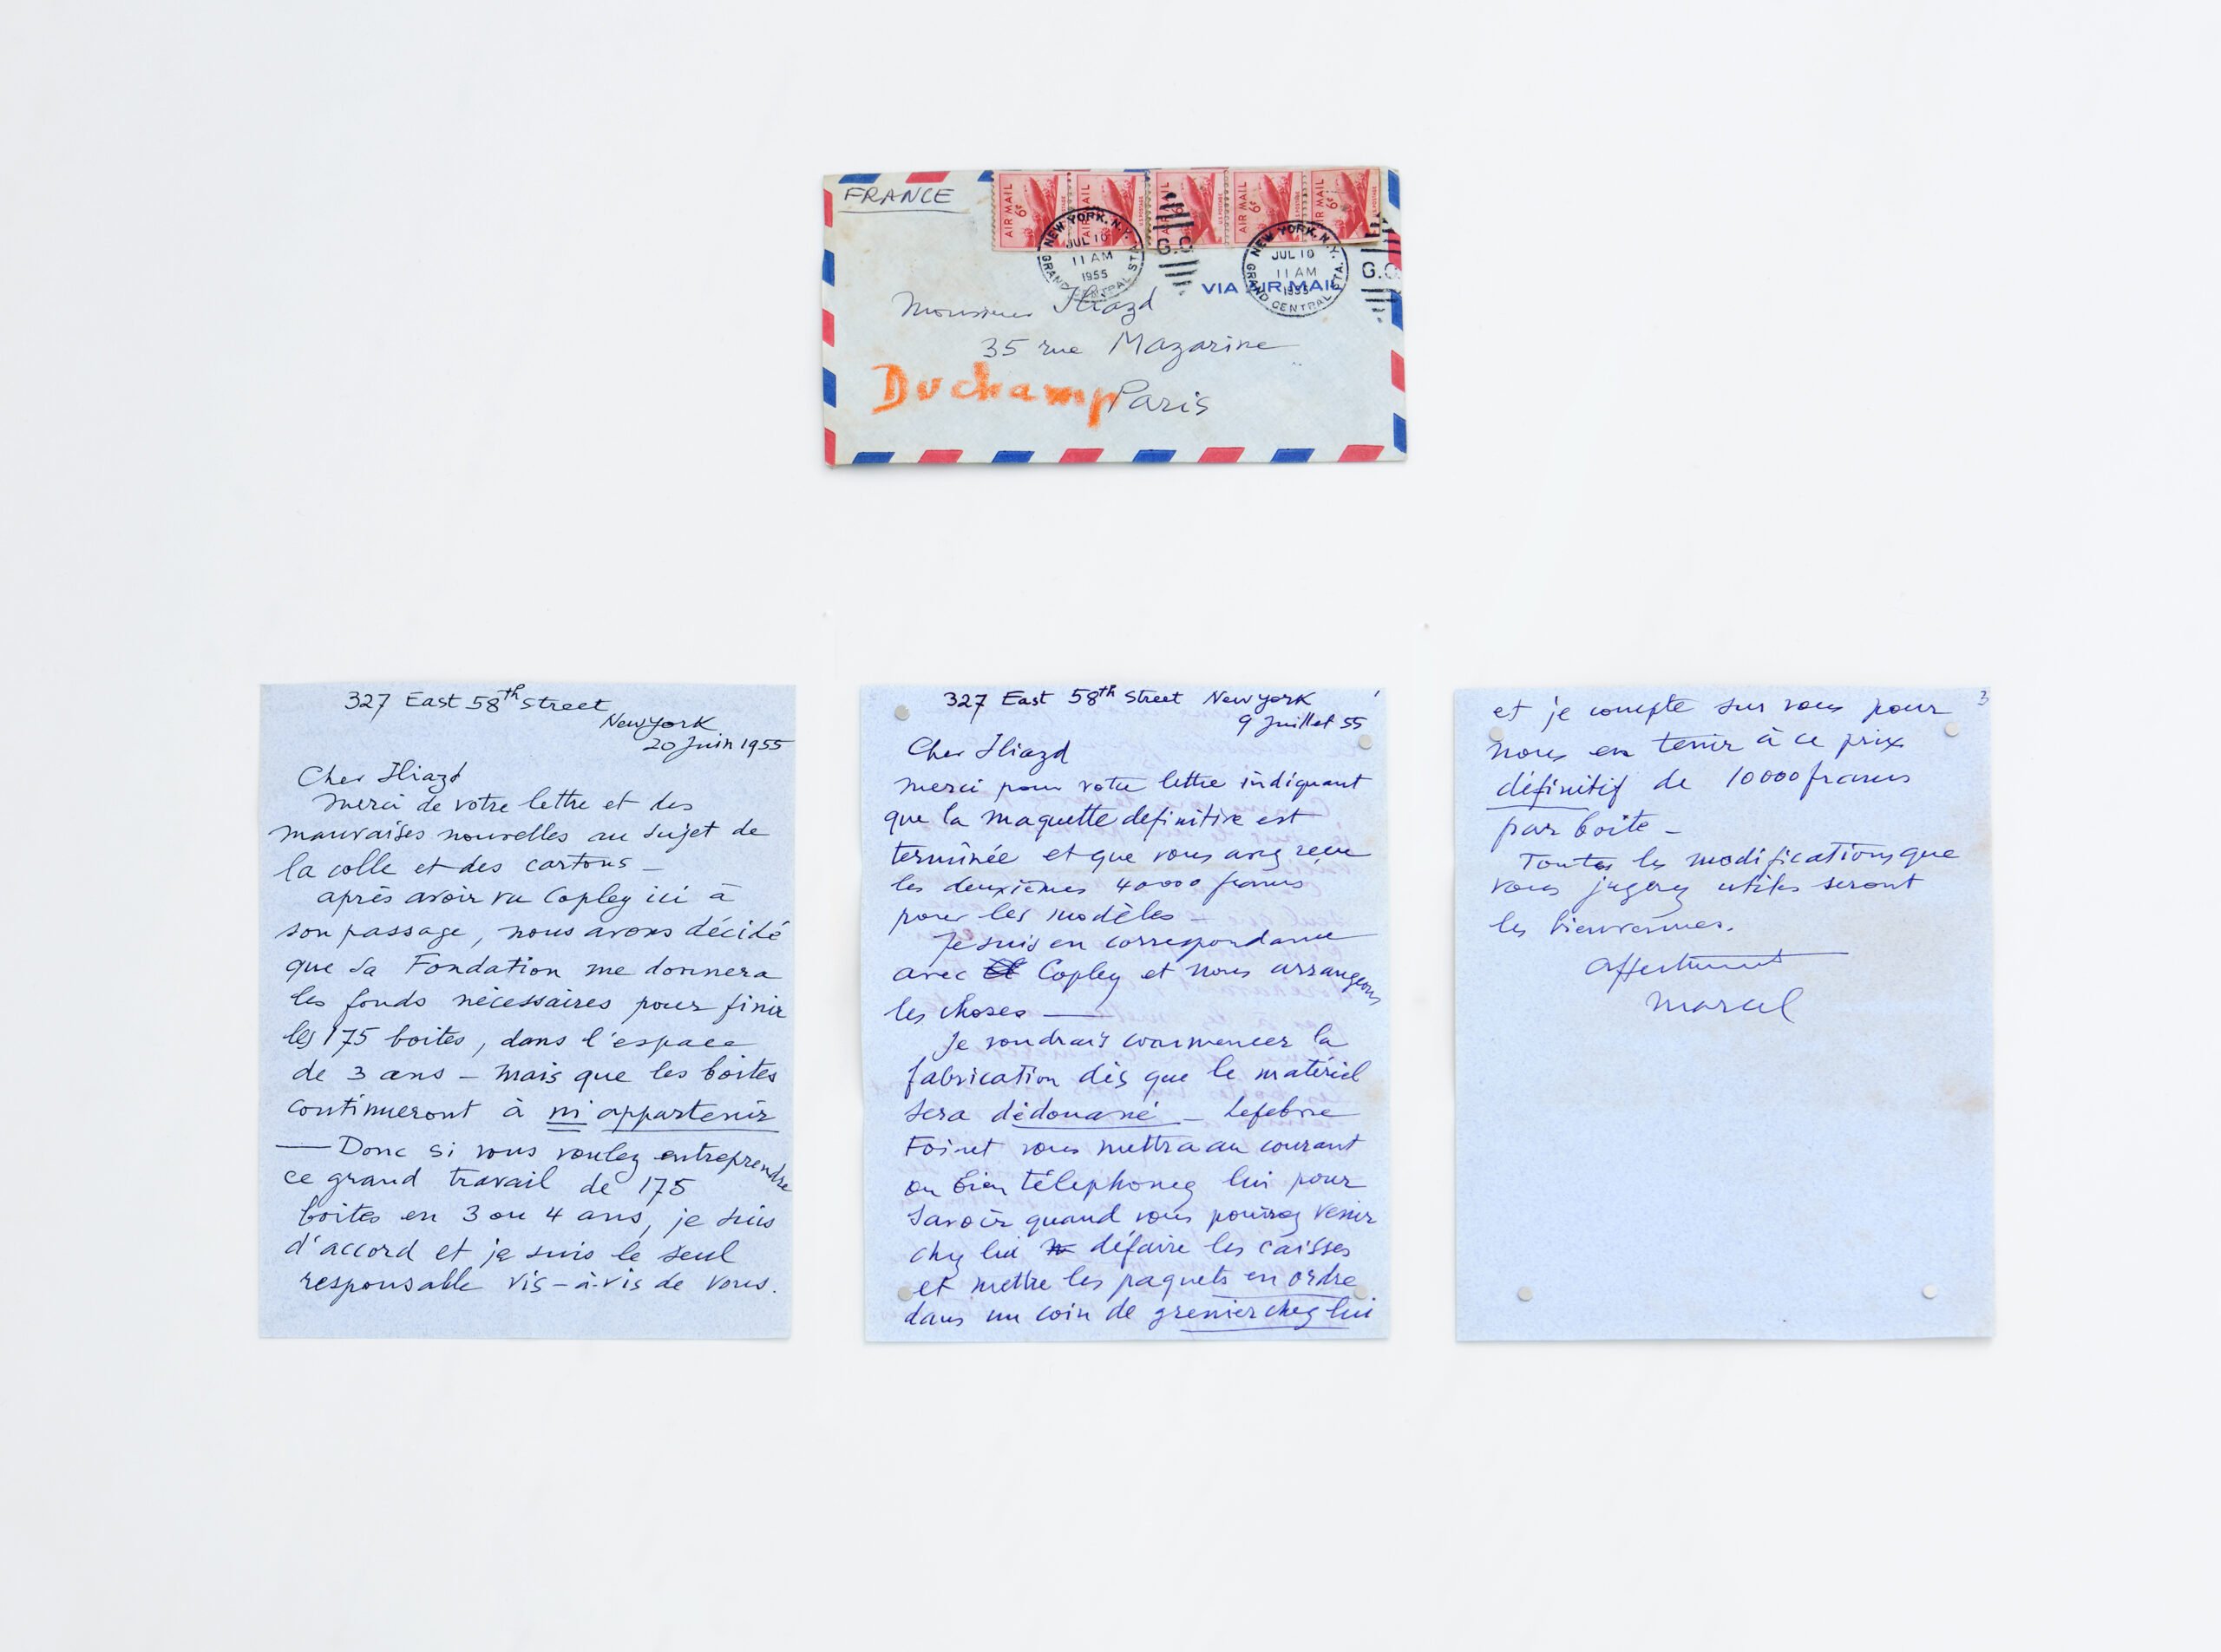 FRANCE
AIR MAIL 6¢ AIR MAIL AIR MAIL 6¢ AIR MAIL 6¢
U.S. POSTAGE
NEW YORK, N.Y. JUL 10 11 AM 1955 GRAND CENTRAL STA.
G.C.
NEW YORK, N.Y. JUL 10 11 AM 1955 GRAND CENTRAL STA.
G.C.
VIA AIR MAIL
Monsieur Iliazd
35 rue Mazarine
Duchamp Paris
327 East 58th Street
New York
20 Juin 1955
Cher Iliazd
Merci de votre lettre et des
mauvaises nouvelles au sujet de
la colle et des cartons –
après avoir vu Copley ici à
son passage, nous avons décidé
que sa Fondation me donnera
les fonds nécessaires pour finir
les 175 boites, dans l'espace
de 3 ans – mais que les boites
continueront à m'appartenir
— Donc si vous voulez entreprendre
ce grand travail de 175
boites en 3 ou 4 ans, je suis
d'accord et je suis le seul
responsable vis-à-vis de vous.
327 East 58th Street New York 1
9 Juillet 55
Cher Iliazd
Merci pour votre lettre indiquant
que la maquette definitive est
terminée et que vous avez reçu
les deuxièmes 40000 francs
pour les modèles
Je suis en correspondance
avec Copley et nous arrangeons
les choses —
Je voudrais commencer la
fabrication dès que le matériel
sera dédouané – Lefebvre
Foinet vous mettra au courant
ou bien téléphonez lui pour
savoir quand vous pourrez venir
chez lui défaire les caisses
et mettre les paquets en ordre
dans un coin de grenier chez lui
3
et je compte sur vous pour
nous en tenir à ce prix
définitif de 10000 francs
par boite –
Toutes les modifications que
vous jugerez utiles seront
les bienvenues.
Affectueusement
Marcel